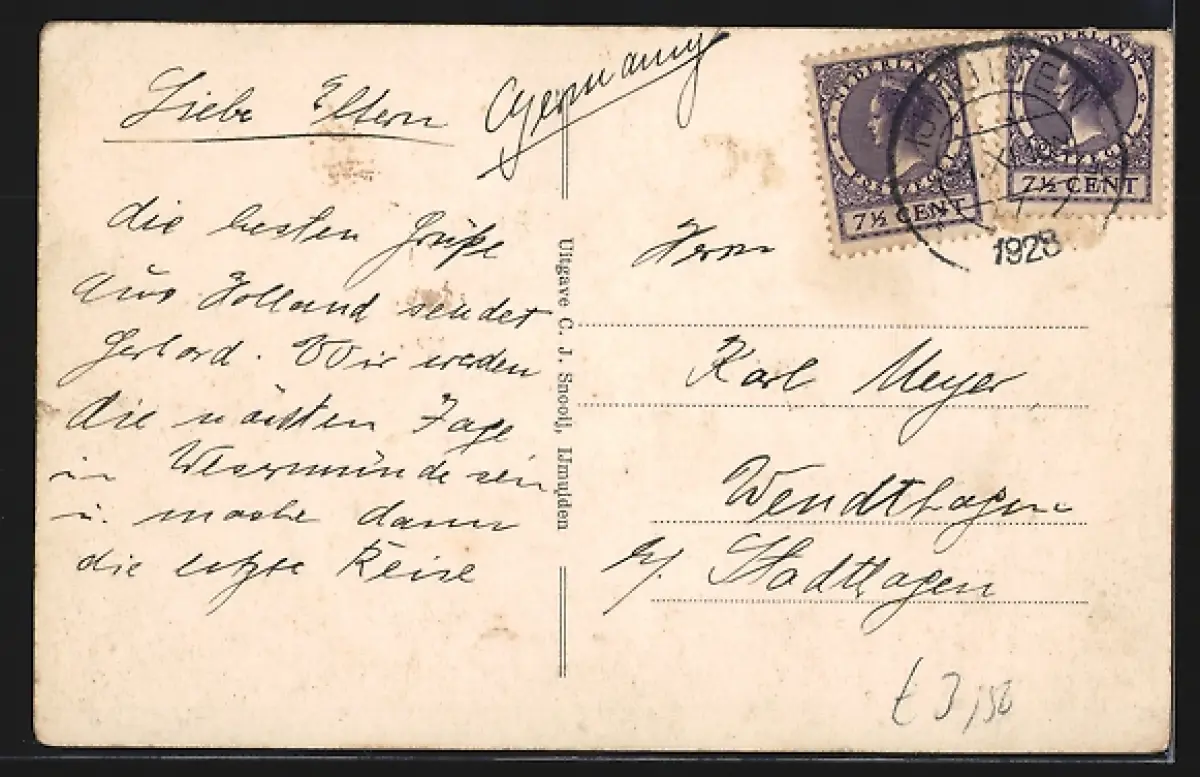 Liebe Eltern
Germany
die besten Grüße
aus Holland sendet
Gerhard. Wir werden
die näisten Tage
in Wesermünde sein
u. mache dann
die letzte Reise
Uitgave C. J. Snooij, IJmuiden
NEDERLAND
POSTZEGEL
7½ CENT
NEDERLAND
POSTZEGEL
7½ CENT
IJMUIDEN
1928
Herrn
Karl Meyer
Wendthagen
b/ Stadthagen
3,50